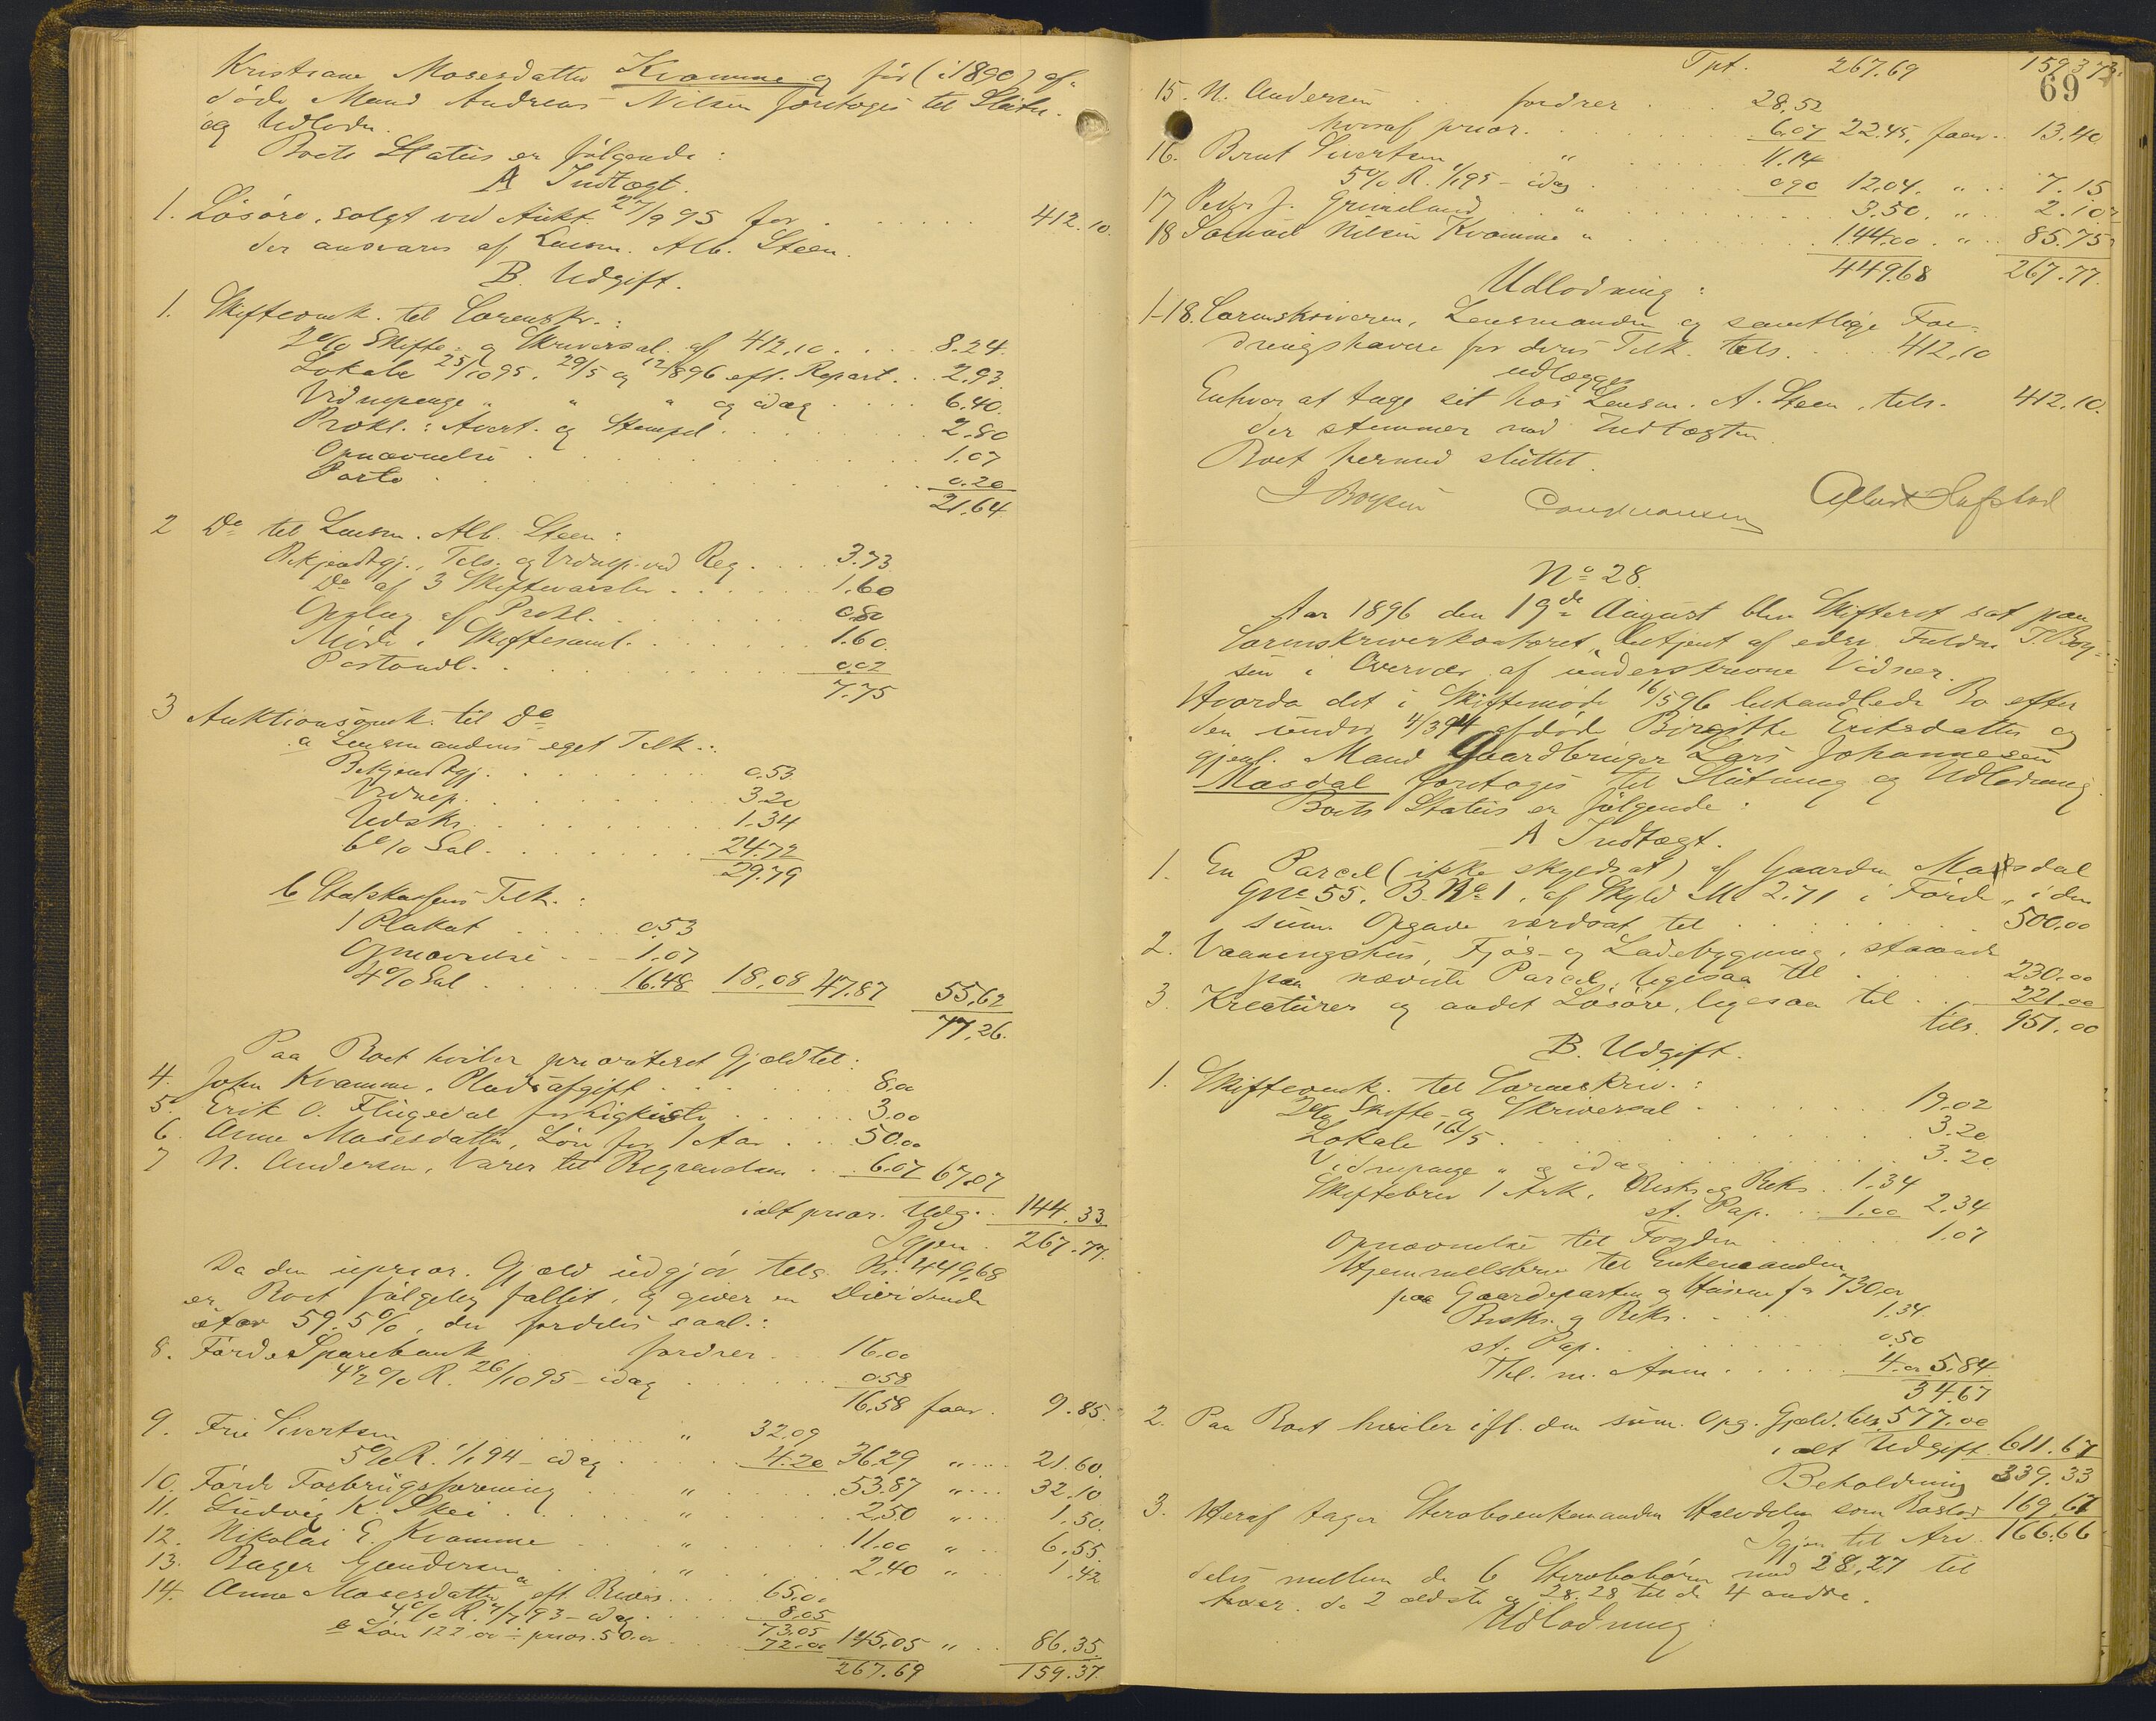 Kristiane Mosesdatter Kvamme og før (i 1890) af-
døde Mand Andreas Nilsen foretoges til Slutn.
og Udlodn.
Boets Status er følgende:
A Indtægt.
1. Løsøre, solgt ved Aukt. 27/9 95 for 412.10.
der ansvares af Lensm. Alb. Steen.
B. Udgift.
1. Skifteomk. til Sorenskr.:
2% Skifte- og Skriversal. af 412.10 8.24.
Lokale 25/10 95, 29/5 og 12/8 96 eft. Repart. 2.93.
Vidnepenge " " " og idag 6.40.
Prokl.: Avert. og Stempel 2.80
Opnævnelse 1.07
Porto 0.20
21.64
2 Do til Lensm. Alb. Steen:
Bekjendtgj., Tels. og Vidnep. ved Reg. 3.73
Do af 3 Skiftevarsler 1.60
Opslag af Prokl. 0.80
Møde i Skiftesaml. 1.60.
Postandl. 0.02
7.75
3 Auktionsomk. til Do
a Lensmandens eget Tilk.:
Bekjendtgj. 0.53
Vidnep. 3.20
Udskr. 1.34
6% Sal. 24.72
29.79
b Statskassens Tilk.:
1 Plakat 0.53
Opnævnelse 1.07
4% Sal 16.48 18.08 47.87 55.62
77.26.
Paa Boet hviler prioriteret Gjæld til:
4. John Kvamme, Pladsafgift 8.00
5. Erik O. Flugedal for Ligkiste 3.00
6. Anne Mosesdatter, Løn for 1 Aar 50.00
7 N. Andersen, Varer til Begravelsen 6.07 67.07
ialt prior. Udg. 144.33
Igjen 267.77.
Da den uprior. Gjæld udgjør tels. Kr. 449.68
er Boet følgelig fallit, og giver en Dividende
stor 59.5%, der fordeles saal.:
8. Førde Sparebank fordrer 16.00
4½% R. 26/10 95 - idag 0.58
16.58 faar 9.85.
9. Fru Sivertsen " 32.09
5% R. 1/1 94 - idag 4.20 36.29 " 21.60.
10. Førde Forbrugsforening " 53.87 " 32.10
11. Ludvig K. Skei " 2.50 " 1.50.
12. Nikolai E. Kvamme " 11.00 " 6.55.
13. Gundersen " 2.40 " 1.42
14. Anne Mosesdatter a eft. Bevis 65.00
4% R. 4/7 93 - idag 8.05
73.05
b Løn 122.00 ÷ prior. 50.00 72.00 145.05 " 86.35.
267.69 159.37.
Tpt. 267.69 159.37
69
15. N. Andersen fordrer 28.52
hvoraf prior. 6.07 22.45, faar 13.40
16. Bernt Sivertsen " 11.14
5% R. 1/1 95 - idag 0.90 12.04. " 7.15
17 Peder J. Grimelund " 3.50. " 2.10
18 Samuel Nilsen Kvamme " 144.00. " 85.75
449.68 267.77.
Udlodning:
1-18. Sorenskriveren, Lensmanden og samtlige For-
dringshavere for deres Tilk. tels. 412.10
udlægges
Enhver at tage sit hos Lensm. A. Steen, tels. 412.10.
der stemmer med Indtægten.
Boet hermed sluttet.
J Boysen
No 28.
Aar 1896 den 19de August blev Skifteret sat paa
Sorenskriverkontoret, betjent af edsv. Fuldm. J. Boy-
sen i Overvær af underskrevne Vidner.
Hvorda det i Skiftemøde 16/5 96 behandlede Bo efter
den under 4/3 94 afdøde Birgithe Eriksdatter og
gjenl. Mand Gaardbruger Lars Johannesen
Mosdal foretoges til Slutning og Udlodning.
Boets Status er følgende:
A Indtægt.
1. En Parcel (ikke skyldsat) af Gaarden Mosdal
Gno 55, B.No 1, af Skyld M 2.71 i Førde, i den
sum. Opgave værdsat til 500.00
2. Vaaningshus, Fjøs- og Ladebygning, staaende
paa nævnte Parcel, ligesaa til 230.00
3. Kreaturer og andet Løsøre, ligesaa til 221.00
tils. 951.00
B. Udgift.
1. Skifteomk. til Sorenskriv.:
2% Skifte- og Skriversal 19.02
Lokale 16/5 3.20
Vidnepenge " og idag 3.20
Skiftebrev 1 Ark, Beskr. og Reks. 1.34
st. Pap. 1.00 2.34
Opnævnelse til Fogden 1.07
Hjemmelsbrev til Enkemanden
paa Gaardeparten og Husene for 730.00
Beskr. og Reks. 1.34.
st. Pap. 0.50
Thl. m. Anm. 4.00 5.84
34.67
2. Paa Boet hviler ifl. den sum. Opg. Gjæld, tels. 577.00
ialt Udgift 611.67
Beholdning 339.33
3. Heraf tager Stervboenkemanden Halvdelen som Boslod 169.67
Igjen til Arv 166.66
deles mellem de 6 Stervbobørn med 28.27 til
hver de 2 ældste og 28.28 til de 4 andre.
Udlodning: